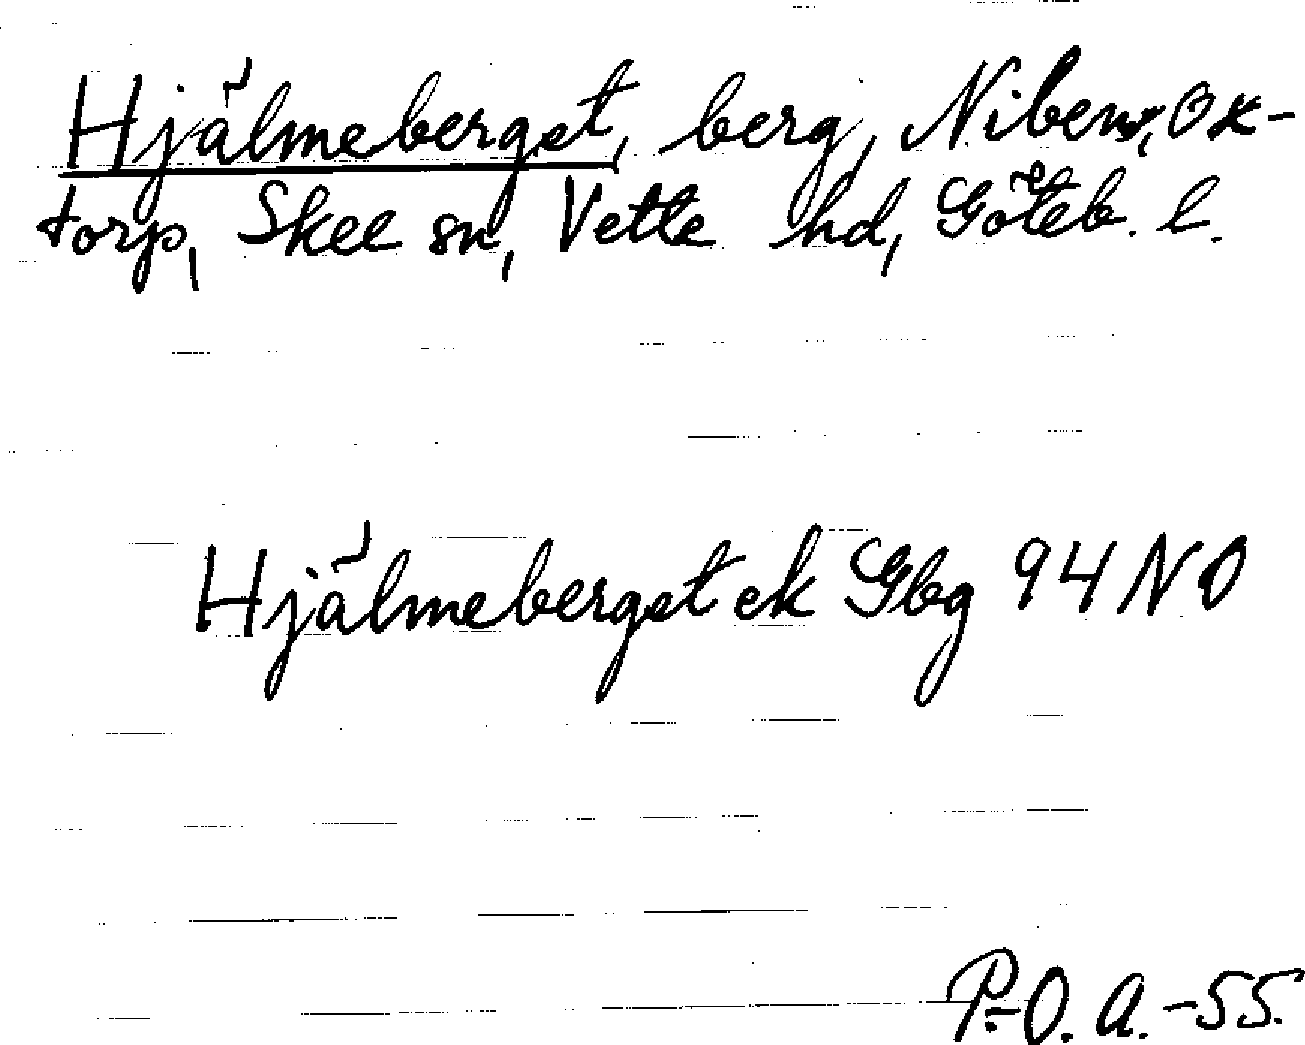 Hjälmeberget, berg, Niben, Ox-
torp, Skee sn, Vette hd, Göteb. l.
Hjälmeberget ek Gbg 94 NO
P.-O. A. -55.